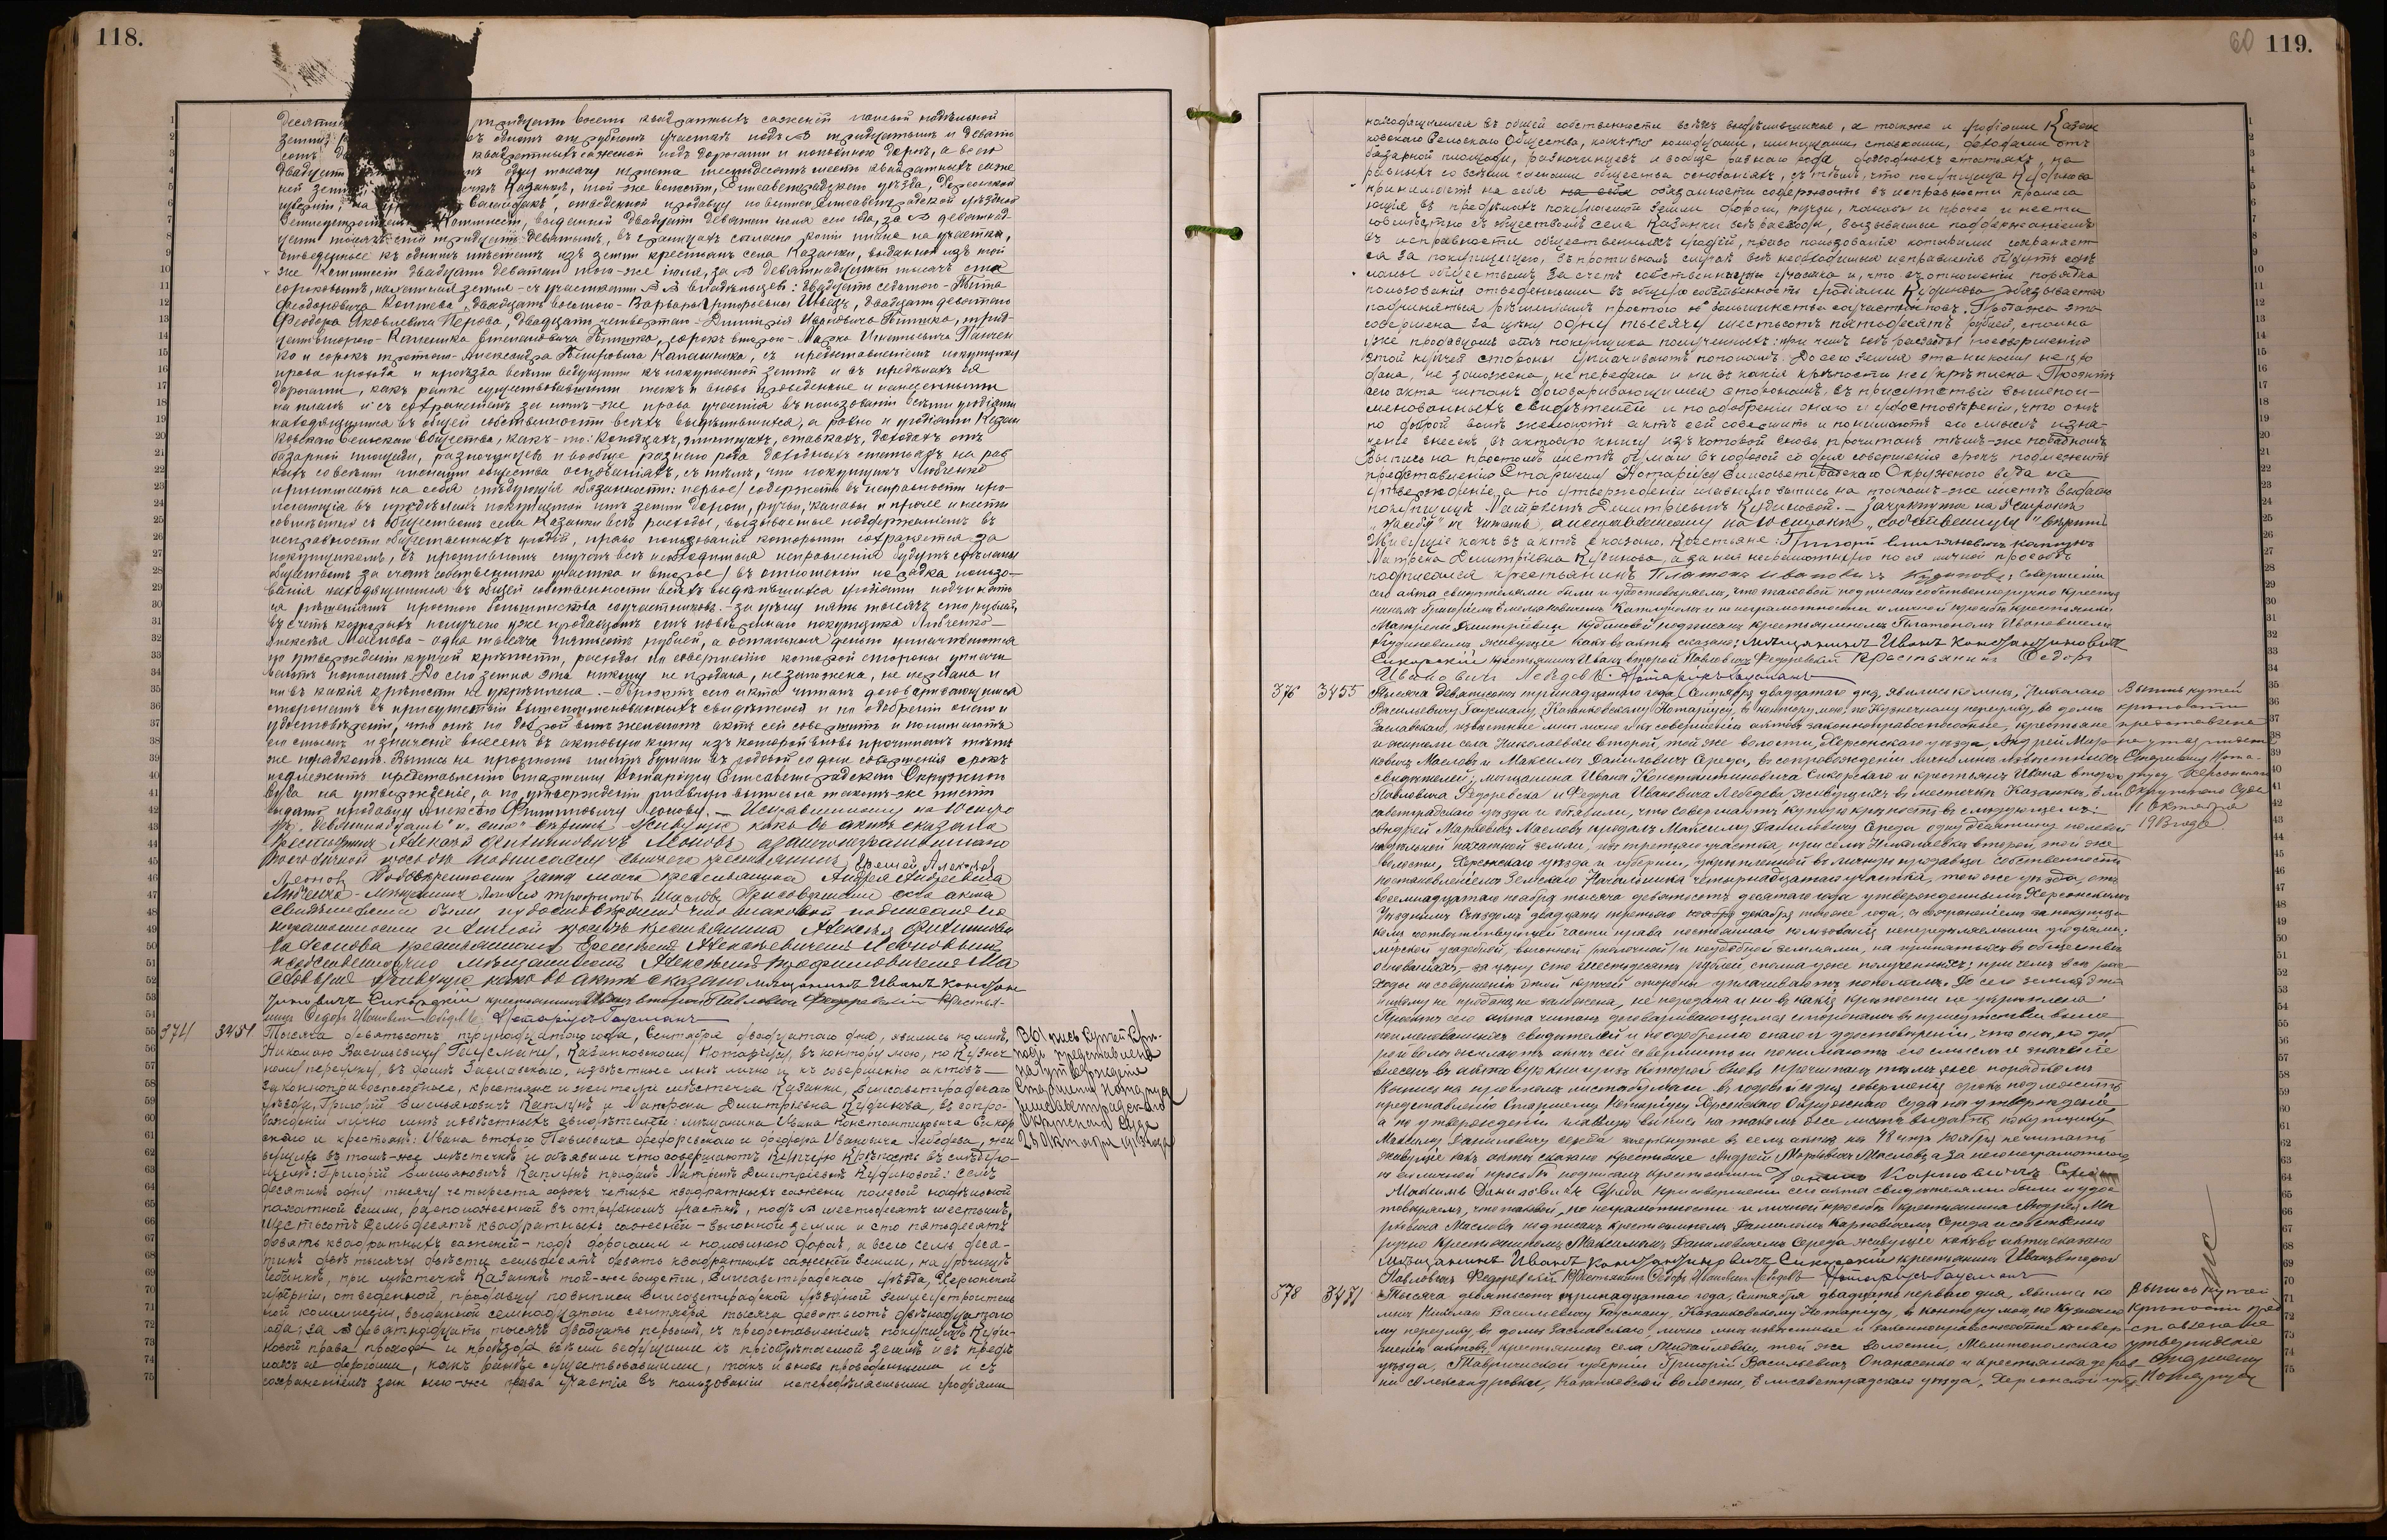 118.
десяти тридцать восемь квадратныхъ саженей пашной надѣльной
земли, въ одномъ отрубномъ участкѣ подъ № тридцатымъ и девяти
сотъ квадратныхъ саженей подъ дорогами и половиною дорогъ, а всего
двадцат одну тысячу триста шестьдесятъ шесть квадратныхъ саже
ней земли, Казанкѣ, той-же волости, Елисаветградскаго уѣзда, Херсонской
губерніи, на отведенной продавцу по выписи Елисаветградской уѣздной
Землеустроительной Коммисіи, выданной двадцать девятаго іюля сего года, за № девятнад-
цать тысячъ сто тридцать девятымъ, въ границахъ согласно копіи плана на участки,
отведенные къ однимъ мѣстамъ изъ земли крестьянъ села Казанки, выданной изъ той
же Коммисіи двадцать девятаго того-же іюля, за № девятнадцать тысячъ сто
сороковымъ, пахатная земля - съ участками №№ владѣльцевъ: двадцать седьмого -
Феодоровича Коптева, двадцать восьмого - Варвары Григорьевны Швецъ, двадцать девятаго
Феодора Яковлевича Перова, двадцать четвертаго - Димитрія Ивановича трид-
цать второго - Степановича сорокъ второго - Марка Игнатьевича Панчен
ко и сорокъ третьяго - Александра Петровича Калашника, съ предоставленіемъ покупщику
права прохода и проѣзда всѣми ведущими къ покупаемой земли и въ предѣлахъ ея
дорогами, какъ ранѣе существовавшими такъ и вновь проведенными и нанесенными
на планъ и съ сохраненіемъ за нимъ-же права участія въ пользованіи всѣми угодіями
находящимися въ общей собственности всѣхъ выдѣлившихся, а равно и угодіями Казан
ковскаго Сельскаго Общества, какъ-то: колодцахъ, ставкахъ, доходахъ отъ
базарной площади, разночинцевъ и вообще разнаго рода доходныхъ статьяхъ на рав
ныхъ со всѣми членами общества основаніяхъ, съ тѣмъ, что покупщикъ Любченко
принимаетъ на себя слѣдующія обязанности: первое) содержать въ исправности про-
легающія въ предѣлахъ покупаемой имъ земли дороги, ручьи, канавы и прочее и нести
совмѣстно съ обществомъ села Казанки всѣ расходы, вызываемые поддержаніемъ въ
исправности общественныхъ угодій, право пользованія которыми сохраняется за
покупщикомъ, въ противномъ случаѣ всѣ необходимыя исправленія будутъ сдѣланы
обществомъ за счетъ собственника участка и второе) въ отношеніи порядка пользо-
ванія находящимися въ общей собственности всѣхъ выдѣлившихся угодіями подчинять
ся рѣшеніямъ простого большинства соучастниковъ. - за цѣну пять тысячъ сто рублей,
въ счетъ которыхъ получено уже продавцомъ отъ повѣреннаго покупщика Любченко -
Алексѣя Маслова - одна тысяча пятьсотъ рублей, а остальныя деньги уплачиваются
по утвержденіи купчей крѣпости, расходы по совершенію которой стороны уплачи
ваютъ пополамъ. До сего земля эта никому не продана, незаложена, не передана и
ни въ какія крѣпости не укрѣплена. - Проектъ сего акта читанъ договаривающимся
сторонамъ въ присутствіи вышепоименованныхъ свидѣтелей и по одобреніи онаго и
удостовѣреніи, что они по доброй волѣ желаютъ актъ сей совершить и понимаютъ
его смыслъ и значеніе внесенъ въ актовую книгу изъ которой вновь прочитанъ тѣмъ
же порядкомъ. Выпись на простомъ листѣ бумаги въ годовой со дня совершенія срокъ
подлежитъ представленію Старшему Нотаріусу Елисаветградскаго Окружного
Суда на утвержденіе, а по утвержденіи главную выпись на такомъ-же листѣ
выдать продавцу Алексѣю Филипповичу Леонову. - Исправленному на 10 стро
кѣ: „девятнадцать“ и „сто“ вѣрить. Живущіе какъ въ актѣ сказано
Крестьянинъ Алексѣй Филипповичъ Леоновъ, а за него неграмотнаго
по его личной просьбѣ подписался сынъ его крестьянинъ Еремѣй Алексѣевъ
Леоновъ Повѣренный крестьянина Андрея Андреевича
Любченко - мѣщанинъ Алексѣй Трофимовъ Масловъ При совершеніи сего акта
свидѣтелями были и удостовѣряемъ что таковой подписанъ по
неграмотности и личной просьбѣ крестьянина Алексѣя Филиппови
ча Леонова крестьяниномъ Еремѣемъ Алексѣевичемъ Леоновымъ
и собственноручно мѣщаниномъ Алексѣемъ Трофимовичемъ Ма
словымъ живущіе какъ въ актѣ сказано мѣщанинъ Иванъ Констан
тиновичъ Сикорскій крестьянинъ Иванъ второй Павловичъ Федоревскій Крестья-
нинъ Федоръ Ивановичъ Лебедевъ. Нотаріусъ Гаусманъ
374 3451 Тысяча девятьсотъ тринадцатаго года, Сентября двадцатаго дня, явились ко мнѣ,
Николаю Васильевичу Гаусману, Казанковскому Нотаріусу, въ контору мою, по Кузнеч
ному переулку, въ домѣ Заславскаго, извѣстные мнѣ лично и къ совершенію актовъ
законноправоспособные, крестьяне и жители мѣстечка Казанки, Елисаветградскаго
уѣзда, Григорій Емельяновичъ Каплунъ и Матрена Димитріевна Кудинова, въ сопро-
вожденіи лично мнѣ извѣстныхъ свидѣтелей: мѣщанина Ивана Константиновича Сикор
скаго и крестьянъ: Ивана второго Павловича Федоревскаго и Федора Ивановича Лебедева, жи
вущихъ въ томъ-же мѣстечкѣ и объявили что совершаютъ купчую крѣпость въ слѣдую-
щемъ: Григорій Емельяновичъ Каплунъ продалъ Матренѣ Димитріевнѣ Кудиновой: семь
десятинъ одну тысячу четыреста сорокъ четыре квадратныхъ сажени полевой надѣльной
пахатной земли, расположенной въ отрубномъ участкѣ, подъ № шестьдесятъ шестымъ,
шестьсотъ семьдесятъ квадратныхъ саженей - выгонной земли и сто пятьдесятъ
девять квадратныхъ саженей - подъ дорогами и половиною дорогъ, а всего семь деся-
тинъ двѣ тысячи двѣсти семьдесятъ девять квадратныхъ саженей земли, на урочищѣ
при мѣстечкѣ Казанкѣ той-же волости, Елисаветградскаго уѣзда, Херсонской
губерніи, отведенной, продавцу по выписи Елисаветградской уѣздной Землеустроитель
ной коммисіи, выданной семнадцатаго сентября тысяча девятьсотъ двѣнадцатаго
года, за № девятнадцать тысячъ двадцать первымъ, съ предоставленіемъ покупщицѣ Куди-
новой права прохода и проѣзда всѣми ведущими къ пріобрѣтаемой землѣ и въ предѣ
лахъ ея дорогами, какъ ранѣе существовавшими, такъ и вновь проведенными и съ
сохраненіемъ за нею-же права участія въ пользованіи нераздѣляемыми угодіями
Выпись купчей крѣ-
пости представлена
на утвержденіе
Старшему Нотаріусу
Елисаветградскаго
Окружного Суда
23 Октября 1913 года
60 119.
находящимися въ общей собственности всѣхъ выдѣлившихся, а также и угодіями Казан
ковскаго Сельскаго Общества, какъ-то колодцами, ставками, доходами отъ
базарной площади, разночинцевъ и вообще разнаго рода, доходныхъ статьяхъ, на
равныхъ со всѣми членами общества основаніяхъ, съ тѣмъ, что покупщица Кудинова
принимаетъ на себя на себя обязанности содержать въ исправности пролега
ющія въ предѣлахъ покупаемой земли дороги, ручьи, канавы и прочее и нести
совмѣстно съ обществомъ села Казанки всѣ расходы, вызываемые поддержаніемъ
въ исправности общественныхъ угодій, право пользованія которыми сохраняет
ся за покупщицею, въ противномъ случаѣ всѣ необходимыя исправленія будутъ сдѣ
ланы обществомъ за счетъ собственницы участка и, что въ отношеніи порядка
пользованія отведенными въ общую собственность угодіями Кудинова обязывается
подчиняться рѣшеніямъ простого большинства соучастниковъ. Продажа эта
совершена за цѣну одну тысячу шестьсотъ пятьдесятъ рублей, сполна
уже продавцомъ отъ покупщика полученныхъ: при чемъ всѣ расходы по совершенію
этой купчей стороны уплачиваютъ пополамъ. До сего земля эта никому не про
дана, не заложена, не передана и ни въ какія крѣпости не укрѣплена. Проектъ
сего акта читанъ договаривающимся сторонамъ, въ присутствіи вышепои-
менованныхъ свидѣтелей и по одобреніи онаго и удостовѣреніи, что они
по доброй волѣ желаютъ актъ сей совершить и понимаютъ его смыслъ и зна-
ченіе внесенъ, въ актовую книгу изъ которой вновь прочитанъ тѣмъ-же порядкомъ.
Выпись на простомъ листѣ бумаги въ годовой со дня совершенія срокъ подлежитъ
представленію Старшему Нотаріусу Елисаветградскаго Окружного Суда на
утвержденіе, а по утвержденіи главную выпись на такомъ-же листѣ выдать
покупщицѣ Матренѣ Димитріевнѣ Кудиновой. - Зачеркнутое на 5 строкѣ
„на себя“ не читать, а исправленному на 10 строкѣ „собственницы“ вѣрить.
Живущіе какъ въ актѣ сказано. Крестьяне: Григорій Емельяновичъ Каплунъ
Матрена Димитріевна Кудинова, а за нея неграмотную по ея личной просьбѣ
подписался крестьянинъ Платонъ Ивановичъ Кудиновъ; Совершеніи
сего акта свидѣтелями были и удостовѣряемъ, что таковой подписанъ собственноручно крестья
ниномъ Григоріемъ Емельяновичемъ Каплуномъ и по неграмотности и личной просьбѣ крестьянки
Матрены Димитріевны Кудиновой подписанъ крестьяниномъ Платономъ Ивановичемъ
Кудиновымъ, живущіе какъ въ актѣ сказано; мѣщанинъ Иванъ Константиновичъ
Сикорскій крестьянинъ Иванъ второй Павловичъ Федоревскій Крестьянинъ Федоръ
Ивановичъ Лебедевъ. Нотаріусъ Гаусманъ
376 3455 Тысяча девятьсотъ тринадцатаго года, Сентября двадцатаго дня, явились ко мнѣ, Николаю
Васильевичу Гаусману, Казанковскому Нотаріусу, въ контору мою, по Кузнечному переулку, въ домѣ
Заславскаго, извѣстные мнѣ лично и къ совершенію актовъ законноправоспособные, крестьяне
и жители села Николаевки второй, той же волости, Херсонскаго уѣзда, Андрей Мар
ковичъ Масловъ и Максимъ Даниловичъ Середа, въ сопровожденіи лично мнѣ извѣстныхъ
свидѣтелей: мѣщанина Ивана Константиновича Сикорскаго и крестьянъ Ивана второго
Павловича Федоревска и Федора Ивановича Лебедева, живущихъ въ мѣстечкѣ Казанкѣ, Ели
саветградскаго уѣзда и объявили, что совершаютъ купчую крѣпость въ слѣдующемъ:
Андрей Марковичъ Масловъ продалъ Максиму Даниловичу Середа одну десятину полевой
надѣльной пахатной земли, изъ третьяго участка, при селѣ Николаевкѣ второй, той же
волости, Херсонскаго уѣзда и губерніи, укрѣпленной въ личную продавца собственность
постановленіемъ Земскаго Начальника четырнадцатаго участка, того же уѣзда, отъ
восемнадцатаго ноября тысяча девятьсотъ десятаго года утвержденнымъ Херсонскимъ
Уѣзднымъ Съѣздомъ двадцать третьяго ноября декабря того же года, съ сохраненіемъ за покупщи
комъ соотвѣтствующей части права постояннаго пользованія непередѣляемыми угодьями:
мірской усадебной, выгонной и неудобной землями, на принятыхъ въ обществѣ
основаніяхъ, - за цѣну сто шестьдесятъ рублей, сполна уже полученныхъ; при чемъ всѣ рас-
ходы по совершенію этой купчей стороны уплачиваютъ пополамъ. До сего земля эта
никому не продана, не заложена, не передана и ни въ какія крѣпости не укрѣплена.
Проектъ сего акта читанъ договаривающимся сторонамъ въ присутствіи выше
поименованныхъ свидѣтелей и по одобреніи онаго и удостовѣреніи, что они, по доб
рой волѣ желаютъ актъ сей совершить и понимаютъ его смыслъ и значеніе
внесенъ въ актовую книгу изъ которой вновь прочитанъ тѣмъ же порядкомъ
Выпись на простомъ листѣ бумаги, въ годовой со дня совершенія срокъ подлежитъ
представленію Старшему Нотаріусу Херсонскаго Окружнаго Суда на утвержденіе
а по утвержденіи главную выпись на такомъ же листѣ выдать покупщику
Максиму Даниловичу Середа зачеркнутое въ семъ актѣ на 48 стр. ноября не читать
живущіе какъ въ актѣ сказано крестьяне Андрей Марковичъ Масловъ а за него неграмотнаго
по его личной просьбѣ подписался крестьянинъ Данило Карповичъ Середа
Максимъ Даниловичъ Середа При совершеніи сего акта свидѣтелями были и удос
товѣряемъ, что таковой, по неграмотности и личной просьбѣ крестьянина Андрея Ма
рковича Маслова подписанъ крестьяниномъ Даниломъ Карповичемъ Середа и собственно
ручно крестьяниномъ Максимомъ Даниловичемъ Середа живущіе какъ въ актѣ сказано
мѣщанинъ Иванъ Константиновичъ Сикорскій крестьянинъ Иванъ второй
Павловичъ Федоревскій Крестьянинъ Федоръ Ивановичъ Лебедевъ Нотаріусъ Гаусманъ
Выпись купчей
крѣпости
представлена
на утвержденіе
Старшему Нота-
ріусу Херсонскаго
Окружнаго Суда
11 Октября
1913 года
378 3471 Тысяча девятьсотъ тринадцатаго года, Сентября двадцать перваго дня, явились ко
мнѣ, Николаю Васильевичу Гаусману, Казанковскому Нотаріусу, въ контору мою, по Кузнечно
му переулку, въ домѣ Заславскаго, лично мнѣ извѣстные и законноправоспособные къ совер
шенію актовъ, крестьянинъ села Михайловки, той же волости, Мелитопольскаго
уѣзда, Таврической губерніи Григорій Васильевичъ Опанасенко и крестьянка дерев
ни Александровки, Казанковской волости, Елисаветградскаго уѣзда, Херсонской губ.
Выпись купчей
крѣпости пред
ставлена на
утвержденіе
Старшему
Нотаріусу